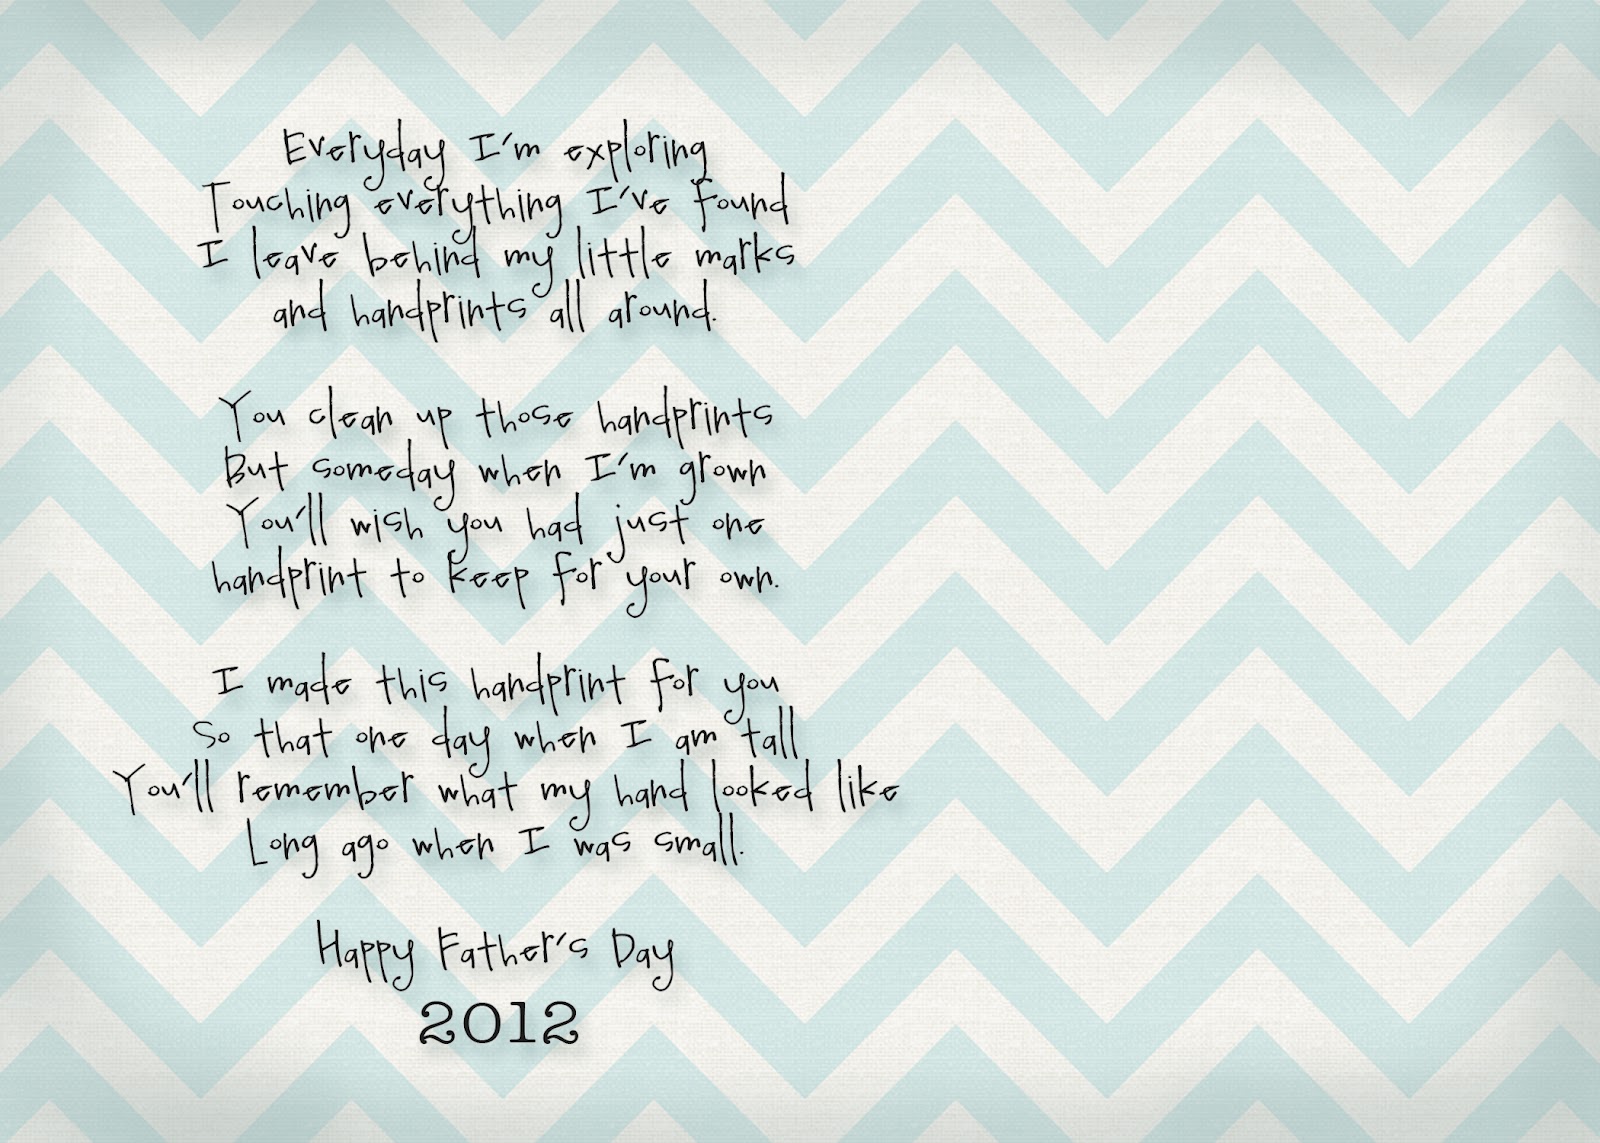 Everyday I'm exploring
Touching everything I've found
I leave behind my little marks
and handprints all around.
You clean up those handprints
But someday when I'm grown
You'll wish you had just one
handprint to keep for your own.
I made this handprint for you
So that one day when I am tall
You'll remember what my hand looked like
Long ago when I was small.
Happy Father's Day
2012